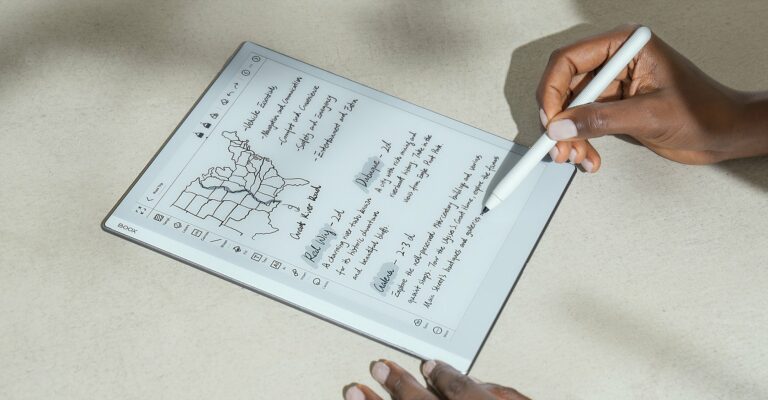 Road Trip
- Vehicle Essentials
- Navigation and Communication
- Comfort and Convenience
- Safety and Emergency
- Entertainment and Extra
Great River Road
Red Wing - 2d
A charming river town known
for its historic downtown
and beautiful bluffs
Dubuque - 2d
A city with rich missing and
riverboat history. Take in the
views from Eagle Point Park
Galena - 2-3 d
Explore the well-preserved 19th-century buildings and various
quaint shops. Tour the Ulysses S. Grant Home, explore the
Main Street's boutiques and galleries
BOOX